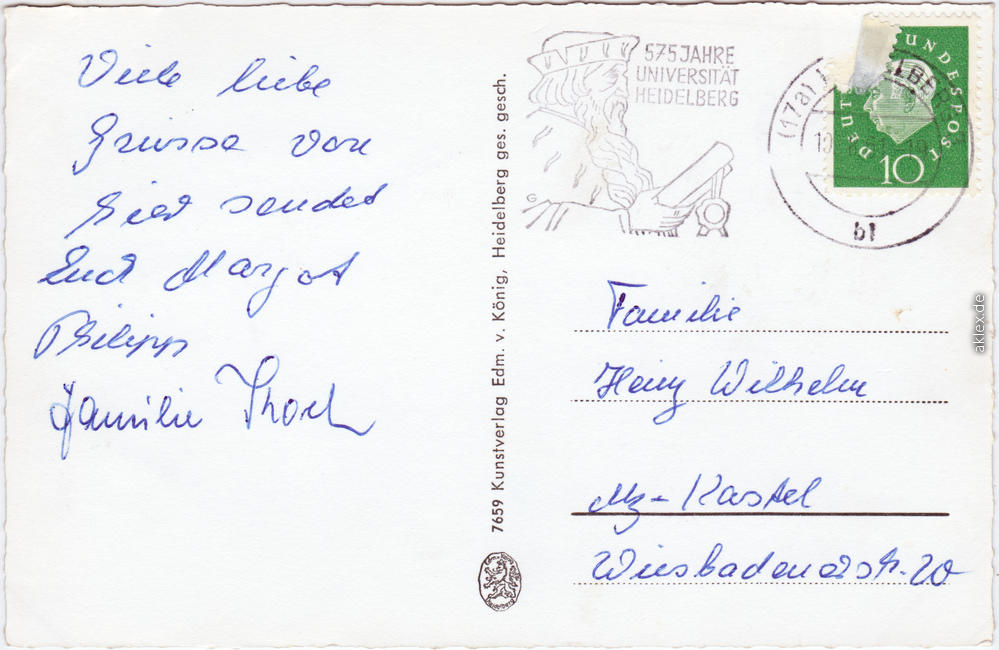 Viele liebe
Grüsse von
hier sendet
Euch Margot
Philipp
Familie
575 JAHRE
UNIVERSITÄT
HEIDELBERG
(17a)
bl
DEUT BUNDESPOST
10
7659 Kunstverlag Edm. v. König, Heidelberg ges. gesch.
Familie
Heinz Wilhelm
Mz-Kastel
Wiesbadenerstr. 20
aklex.de